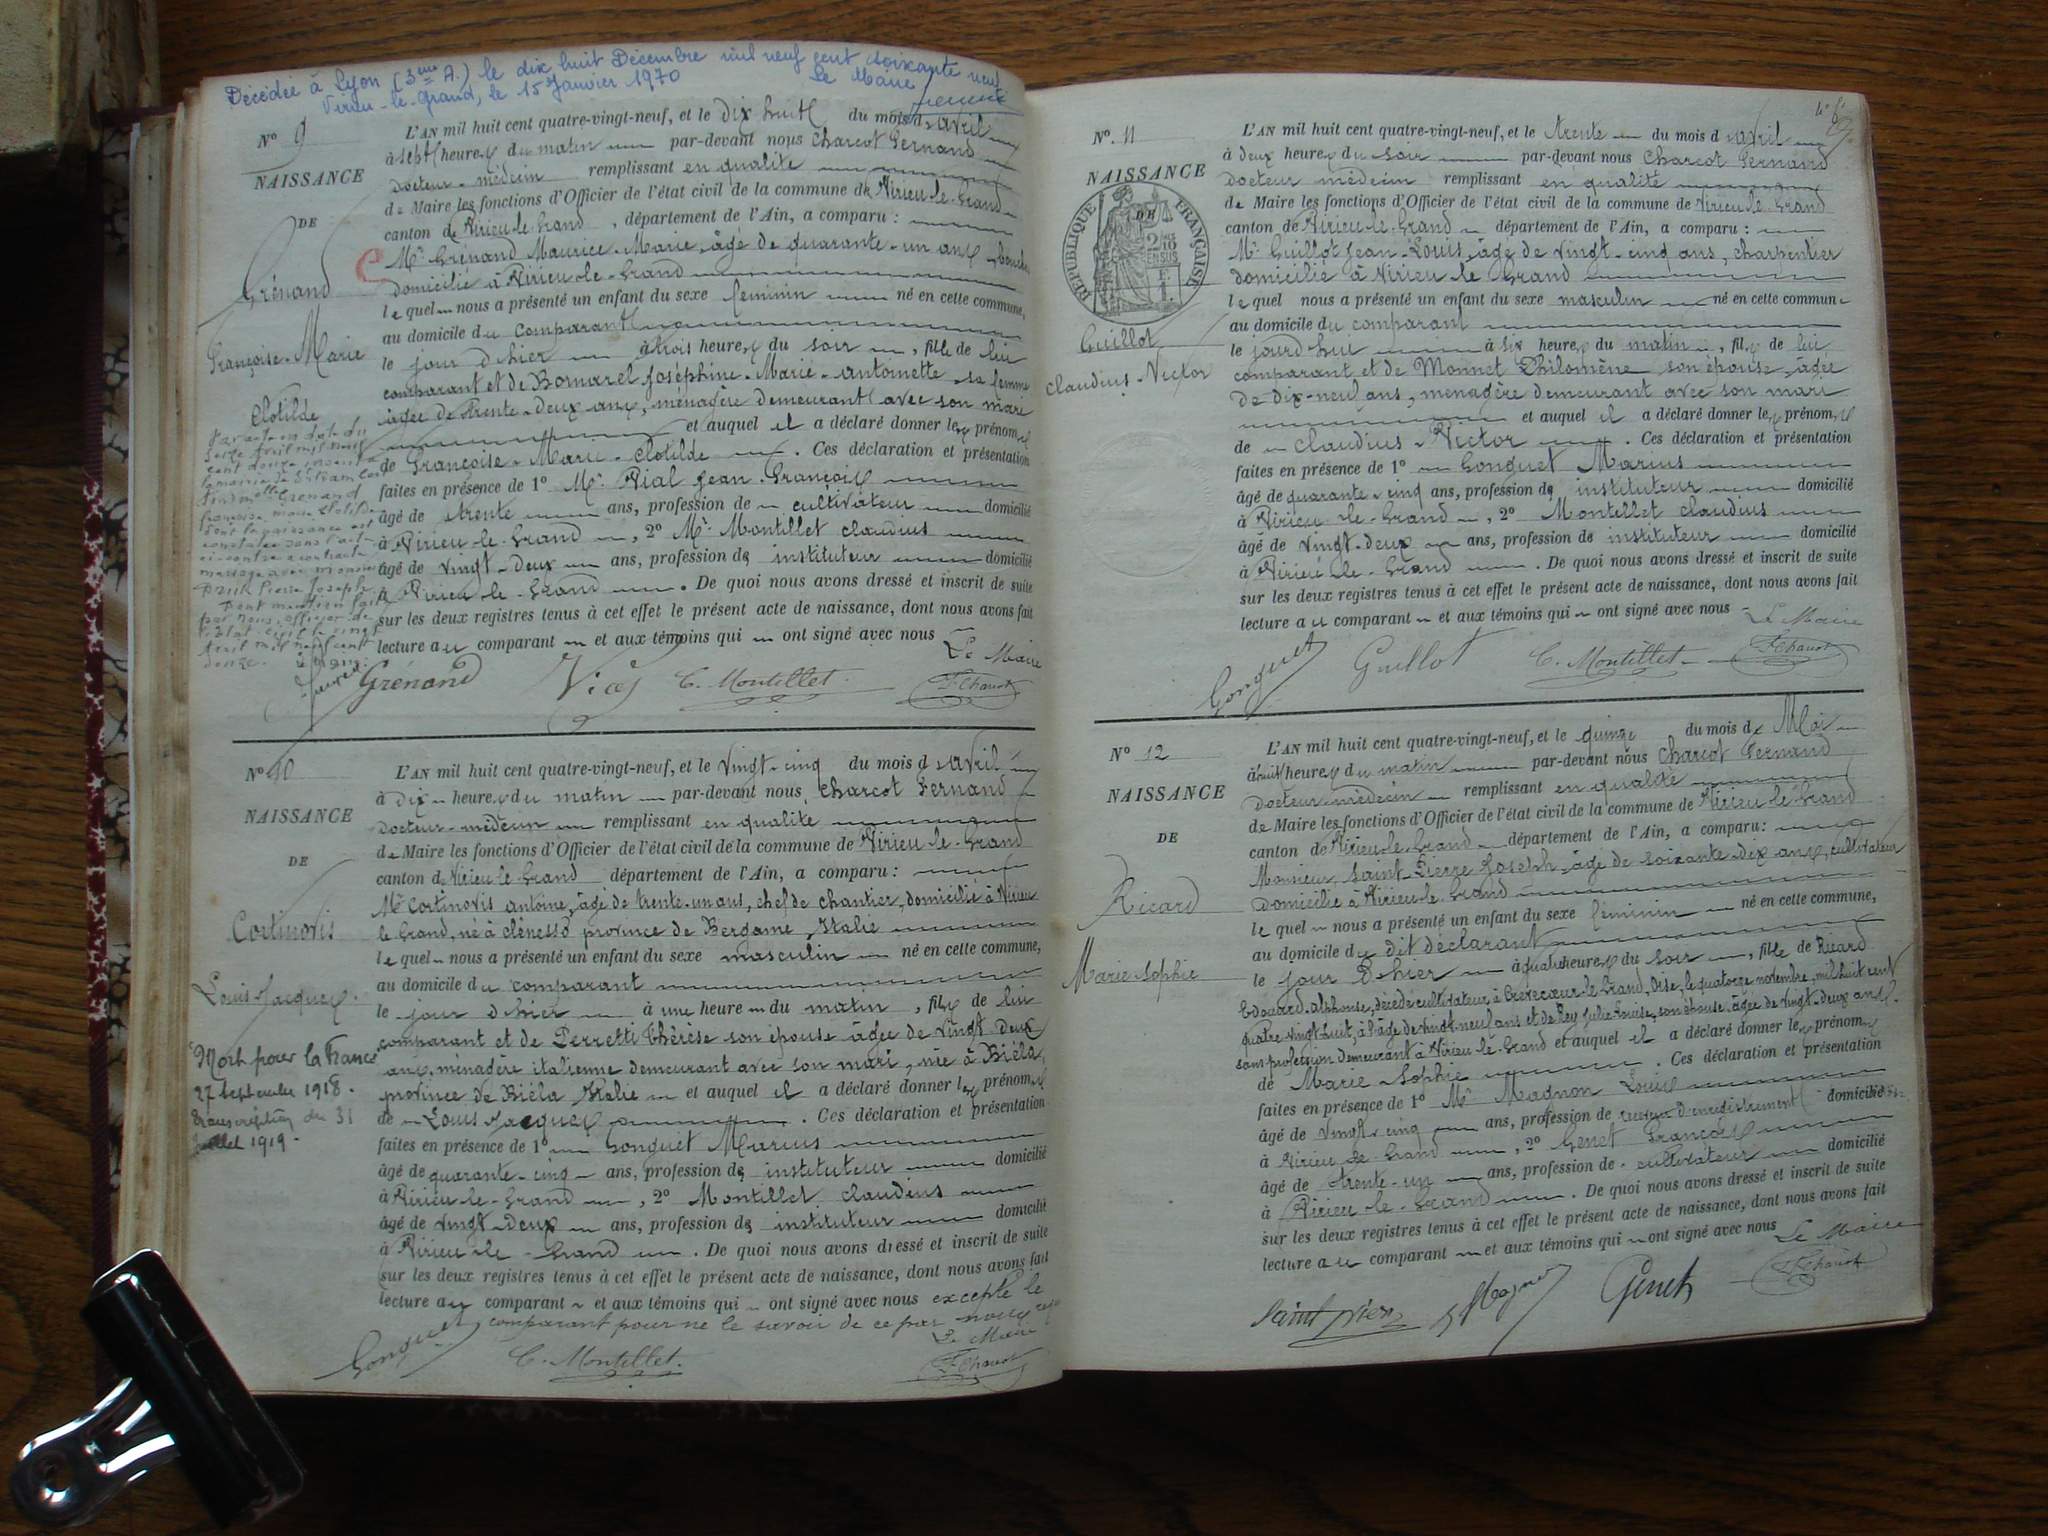 Décédée à Lyon (3eme A.) le dix huit Décembre mil neuf cent soixante neuf
Virieu-le-Grand, le 15 Janvier 1970 Le Maire
N° 9
NAISSANCE
DE
Grénand
Françoise-Marie
Clotilde
L'AN mil huit cent quatre-vingt-neuf, et le dix huit du mois d'avril
à sept heures du matin par-devant nous Charcot Fernand
Docteur-médecin remplissant en qualité
de Maire les fonctions d'Officier de l'état civil de la commune de Virieu-le-Grand
canton de Virieu-le-Grand, département de l'Ain, a comparu :
Mr Grénand Maurice-Marie, âgé de quarante-un ans,
domicilié à Virieu-le-Grand
lequel nous a présenté un enfant du sexe féminin né en cette commune,
au domicile du comparant
le jour d'hier à trois heures du soir, fille de lui
comparant et de Bomarel Joséphine-Marie-Antoinette sa femme
âgée de trente-deux ans, ménagère demeurant avec son mari
et auquel il a déclaré donner les prénoms
de Françoise-Marie-Clotilde. Ces déclaration et présentation
faites en présence de 1° Mr. Vial Jean-François
âgé de trente ans, profession de cultivateur domicilié
à Virieu-le-Grand, 2° Mr. Montillet Claudius
âgé de vingt-deux ans, profession de instituteur domicilié
à Virieu-le-Grand. De quoi nous avons dressé et inscrit de suite
sur les deux registres tenus à cet effet le présent acte de naissance, dont nous avons fait
lecture au comparant et aux témoins qui ont signé avec nous
Le Maire
Grénand C. Montillet F. Charcot
Par acte en date du
seize avril mil neuf
cent douze,
Grénand
Françoise Marie Clotilde
dont la naissance est
constatée dans l'acte
ci-contre a contracté
mariage avec monsieur
Pierre Joseph
Dont mention faite
par nous, officier de
l'état civil le vingt
avril mil neuf cent
douze. Le Maire
N° 10
NAISSANCE
DE
Cortinovis
Louis-Jacques.
"Mort pour la France"
27 septembre 1918.
Transcription du 31
Juillet 1919.
L'AN mil huit cent quatre-vingt-neuf, et le vingt-cinq du mois d'avril
à dix heures du matin par-devant nous, Charcot Fernand
Docteur-médecin remplissant en qualité
de Maire les fonctions d'Officier de l'état civil de la commune de Virieu-le-Grand
canton de Virieu le Grand département de l'Ain, a comparu :
Mr Cortinovis Antoine, âgé de trente-un ans, chef de chantier, domicilié à Virieu
le Grand, né à province de Bergame, Italie
lequel nous a présenté un enfant du sexe masculin né en cette commune,
au domicile du comparant
le jour d'hier à une heure du matin, fils de lui
comparant et de Perretti Thérèse son épouse âgée de vingt deux
ans, ménagère italienne demeurant avec son mari, née à Biéla,
province de Biéla Italie et auquel il a déclaré donner les prénoms
de Louis-Jacques. Ces déclaration et présentation
faites en présence de 1° Gonguet Marius
âgé de quarante-cinq ans, profession de instituteur domicilié
à Virieu-le-Grand, 2° Montillet Claudius
âgé de vingt-deux ans, profession de instituteur domicilié
à Virieu-le-Grand. De quoi nous avons dressé et inscrit de suite
sur les deux registres tenus à cet effet le présent acte de naissance, dont nous avons fait
lecture au comparant et aux témoins qui ont signé avec nous excepté le
comparant pour ne le savoir de ce par nous
Le Maire
Gonguet C. Montillet. F. Charcot
N° 11
NAISSANCE
DE
RÉPUBLIQUE FRANÇAISE
2/10 EN SUS
Guillot
Claudius-Victor
L'AN mil huit cent quatre-vingt-neuf, et le trente du mois d'avril
à deux heures du soir par-devant nous Charcot Fernand
Docteur médecin remplissant en qualité
de Maire les fonctions d'Officier de l'état civil de la commune de Virieu-le-Grand
canton de Virieu-le-Grand département de l'Ain, a comparu :
Mr. Guillot Jean-Louis, âgé de vingt-cinq ans, charpentier
domicilié à Virieu le Grand
lequel nous a présenté un enfant du sexe masculin né en cette commune
au domicile du comparant
le jourd'hui à six heures du matin, fils de lui
comparant et de Monnet Philomène son épouse, âgée
de dix-neuf ans, ménagère demeurant avec son mari
et auquel il a déclaré donner les prénoms
de Claudius-Victor. Ces déclaration et présentation
faites en présence de 1° Gonguet Marius
âgé de quarante-cinq ans, profession de instituteur domicilié
à Virieu-le-Grand, 2° Montillet Claudius
âgé de vingt-deux ans, profession de instituteur domicilié
à Virieu-le-Grand. De quoi nous avons dressé et inscrit de suite
sur les deux registres tenus à cet effet le présent acte de naissance, dont nous avons fait
lecture au comparant et aux témoins qui ont signé avec nous
Le Maire
Gonguet Guillot C. Montillet F. Charcot
N° 12
NAISSANCE
DE
Ricard
Marie-Sophie
L'AN mil huit cent quatre-vingt-neuf, et le quinze du mois de Mai
à huit heures du matin par-devant nous Charcot Fernand
Docteur-médecin remplissant en qualité
de Maire les fonctions d'Officier de l'état civil de la commune de Virieu-le-Grand
canton de Virieu-le-Grand département de l'Ain, a comparu :
Monsieur Saint-Pierre Joseph, âgé de soixante-dix ans, cultivateur
domicilié à Virieu-le-Grand
lequel nous a présenté un enfant du sexe féminin né en cette commune,
au domicile du dit déclarant
le jour d'hier à quatre heures du soir, fille de Ricard
Edouard-Alphonse, décédé cultivateur à Crèvecœur-le-Grand, Oise, le quatorze novembre, mil huit cent
quatre-vingt-huit, à l'âge de vingt-neuf ans et de Rey Julie-Louise, son épouse, âgée de vingt-deux ans,
sans profession demeurant à Virieu-le-Grand et auquel il a déclaré donner les prénoms
de Marie-Sophie. Ces déclaration et présentation
faites en présence de 1° Mr Magnon Louis
âgé de vingt-cinq ans, profession de receveur d'enregistrement domicilié
à Virieu-le-Grand, 2° Genet François
âgé de trente-un ans, profession de cultivateur domicilié
à Virieu-le-Grand. De quoi nous avons dressé et inscrit de suite
sur les deux registres tenus à cet effet le présent acte de naissance, dont nous avons fait
lecture au comparant et aux témoins qui ont signé avec nous
Le Maire
Genet F. Charcot